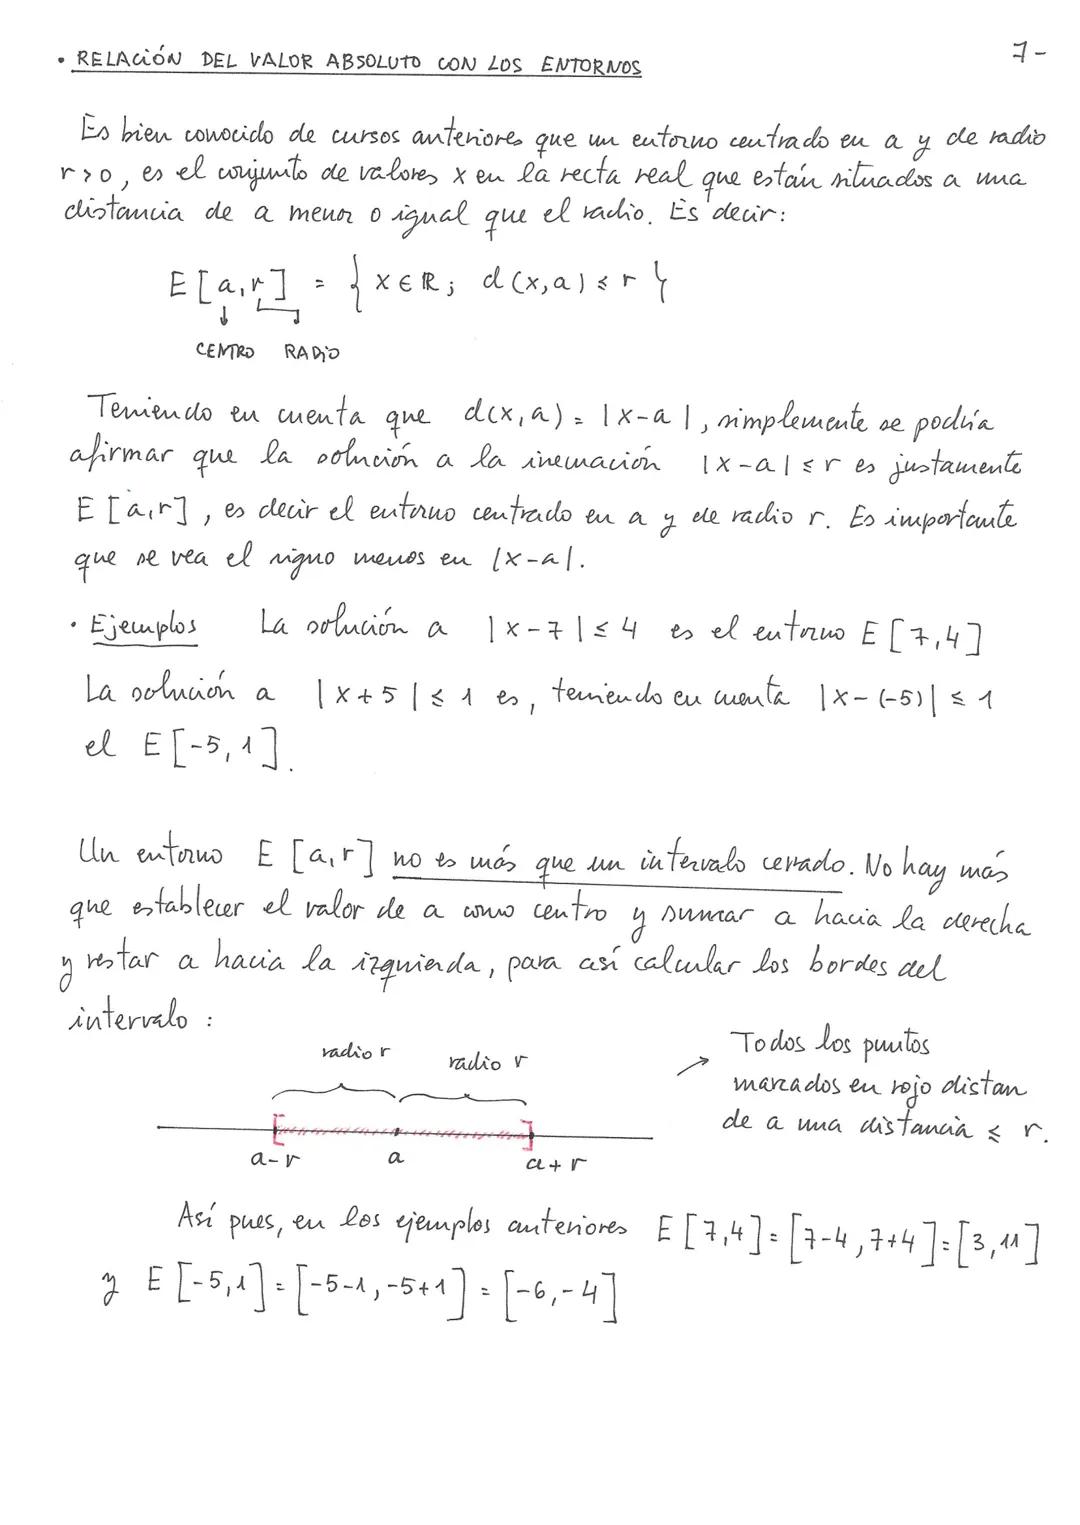 7-
• RELACIÓN DEL VALOR ABSOLUTO CON LOS ENTORNOS
Es bien conocido de cursos anteriores que un entorno centrado en a y de radio
r>0, es el conjunto de valores x en la recta real que están situados a una
distancia de a menor o igual que el radio. Es decir:
E[a,r] = { x∈ℝ; d(x,a) ≤ r }
CENTRO RADIO
Teniendo en cuenta que d(x,a) = |x-a|, simplemente se podría
afirmar que la solución a la inecuación |x-a| ≤ r es justamente
E[a,r], es decir el entorno centrado en a y de radio r. Es importante
que se vea el signo menos en |x-a|.
• Ejemplos La solución a |x-7| ≤ 4 es el entorno E[7,4]
La solución a |x+5| ≤ 1 es, teniendo en cuenta |x-(-5)| ≤ 1
el E[-5,1].
Un entorno E[a,r] no es más que un intervalo cerrado. No hay más
que establecer el valor de a como centro y sumar a hacia la derecha
y restar a hacia la izquierda, para así calcular los bordes del
intervalo:
radio r radio r
a-r a a+r
→ Todos los puntos
marcados en rojo distan
de a una distancia ≤ r.
Así pues, en los ejemplos anteriores E[7,4]=[7-4,7+4]=[3,11]
y E[-5,1]=[-5-1,-5+1]=[-6,-4]